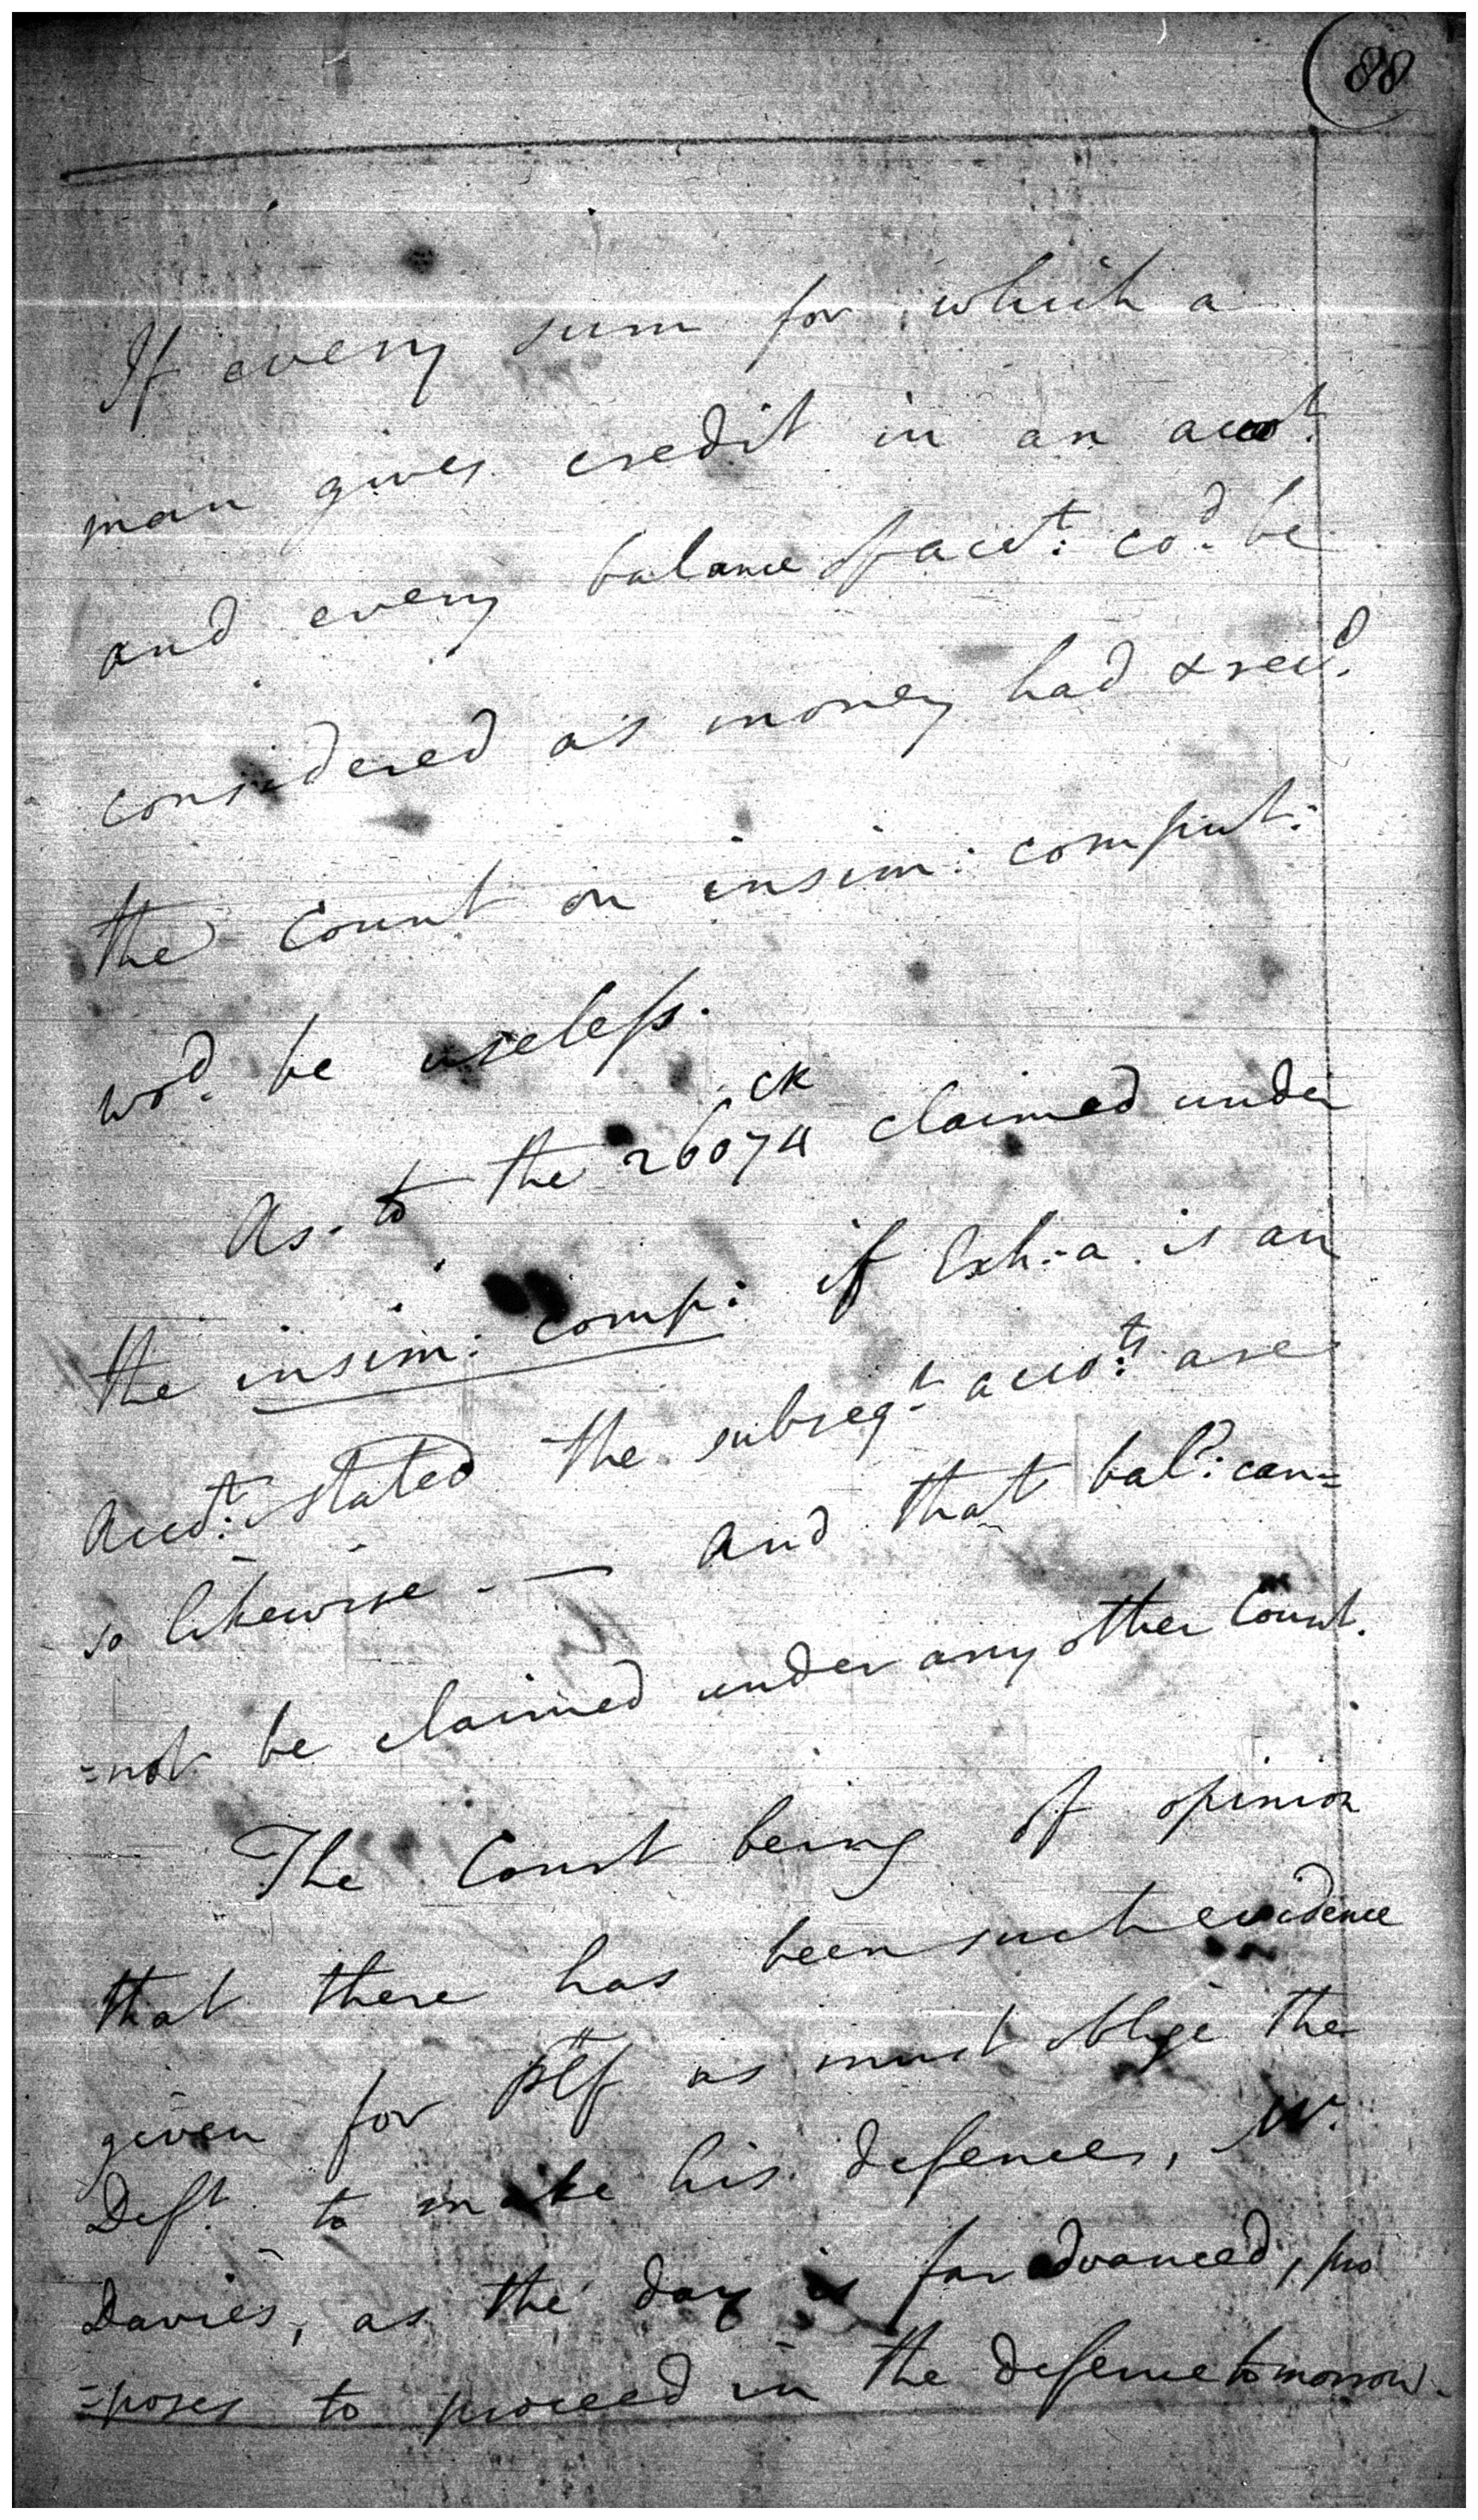 88
If every sum for which a
man gives credit in an accot.
and every balance of acct: cod. be
considered as money had & recd.
the Count on insim: comput:
wod. be useless.
As to the 26074 CR claimed under
the insim: comp: if Exh: a is an
Accot: stated the subseqt. accots: are
so likewise — and that bale: can=
=not be claimed under any other Count.
The Court being of opinion
that there has been such evidence
given for Pltf as must oblige the
Deft. to make his defences, Mr.
Davies, as the day is far advanced, pro
=poses to proceed in the defence tomorrow.